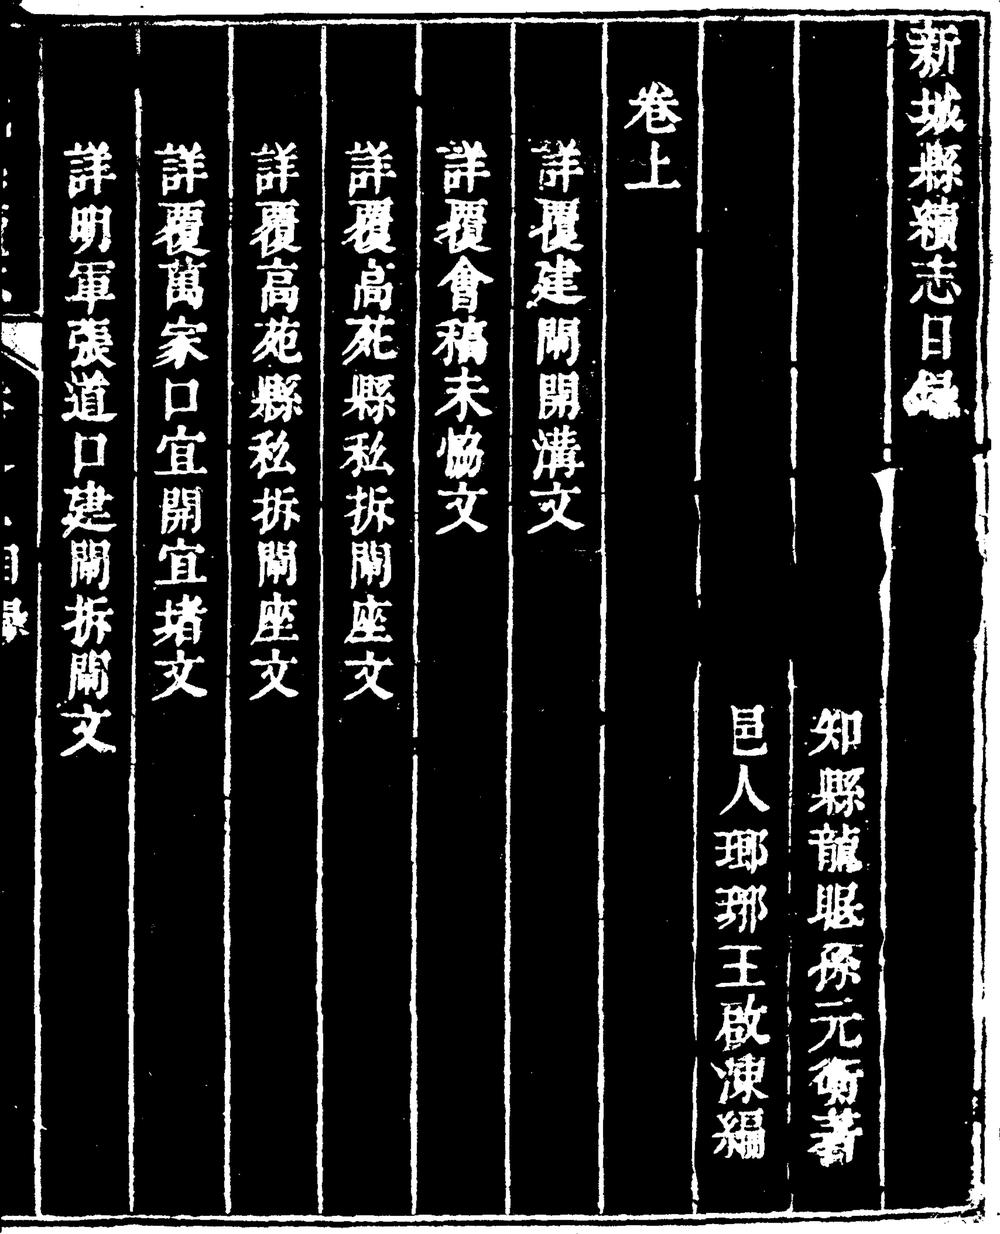 新城縣續志目錄
知縣龍眠孫元衡著
邑人瑯琊王啟涑編
卷上
詳覆建閘開溝文
詳覆會稿未協文
詳覆高苑縣私拆閘座文
詳覆高苑縣私拆閘座文
詳覆萬家口宜開宜堵文
詳明軍張道口建閘拆閘文
目錄